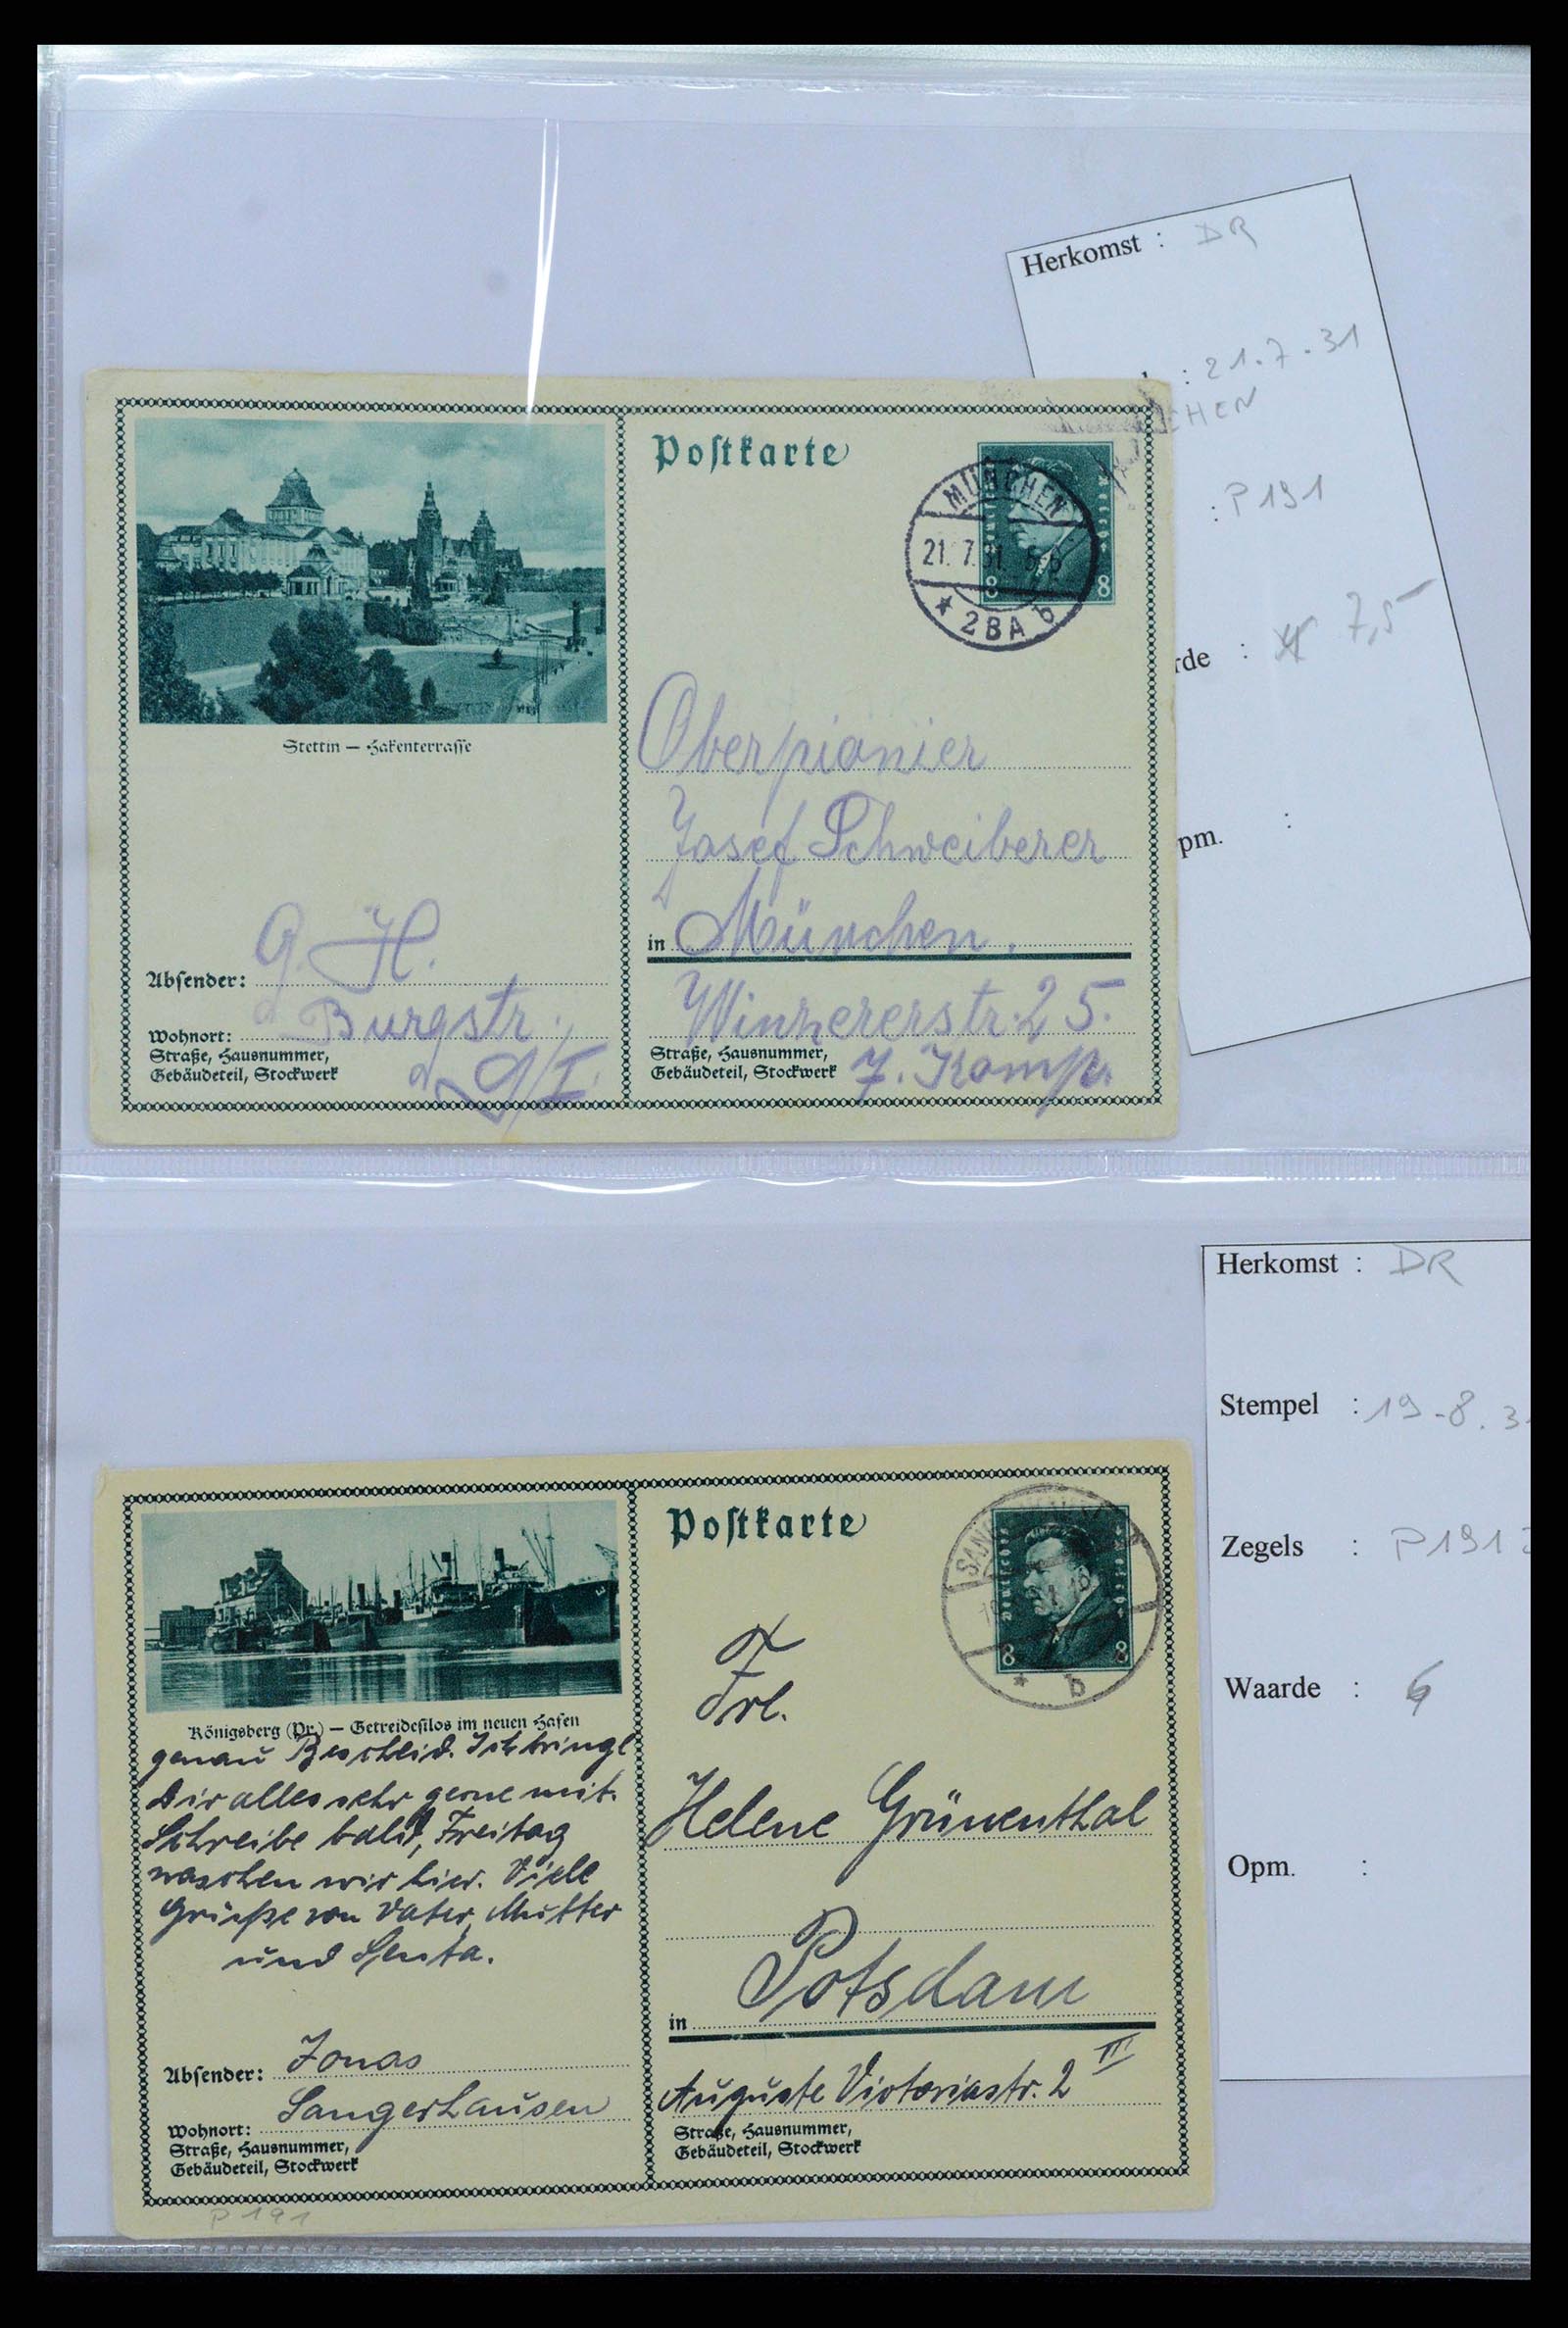 Herkomst : DR
: 21.7.31
CHEN
: P191
rde : 7,5
pm. :
Postkarte
MÜNCHEN
21. 7. 31. 5-6
* 2BA b
8 8
Stettin — Hakenterrasse
Oberpionier
Josef Schweiberer
in München.
Winzererstr. 25.
Straße, Hausnummer,
Gebäudeteil, Stockwerk
7. Komp.
Absender: G. H.
Wohnort: Burgstr.
Straße, Hausnummer,
Gebäudeteil, Stockwerk
9/I.
Herkomst : DR
Stempel : 19-8.3
Zegels : P191
Waarde : 6
Opm. :
Postkarte
SANG
* b
8 8
Königsberg (Pr.) — Getreidesilos im neuen Hafen
genau Bescheid. Ich bringe
Dir alles sehr gerne mit.
Schreibe bald, Freitag
waschen wir hier. Viele
Grüsse von Vater, Mutter
und Senta.
Frl.
Helene Grünenthal
in Potsdam
Auguste Victoriastr. 2 III
Straße, Hausnummer,
Gebäudeteil, Stockwerk
Absender: Jonas
Sangerhausen
Wohnort:
Straße, Hausnummer,
Gebäudeteil, Stockwerk
P 191